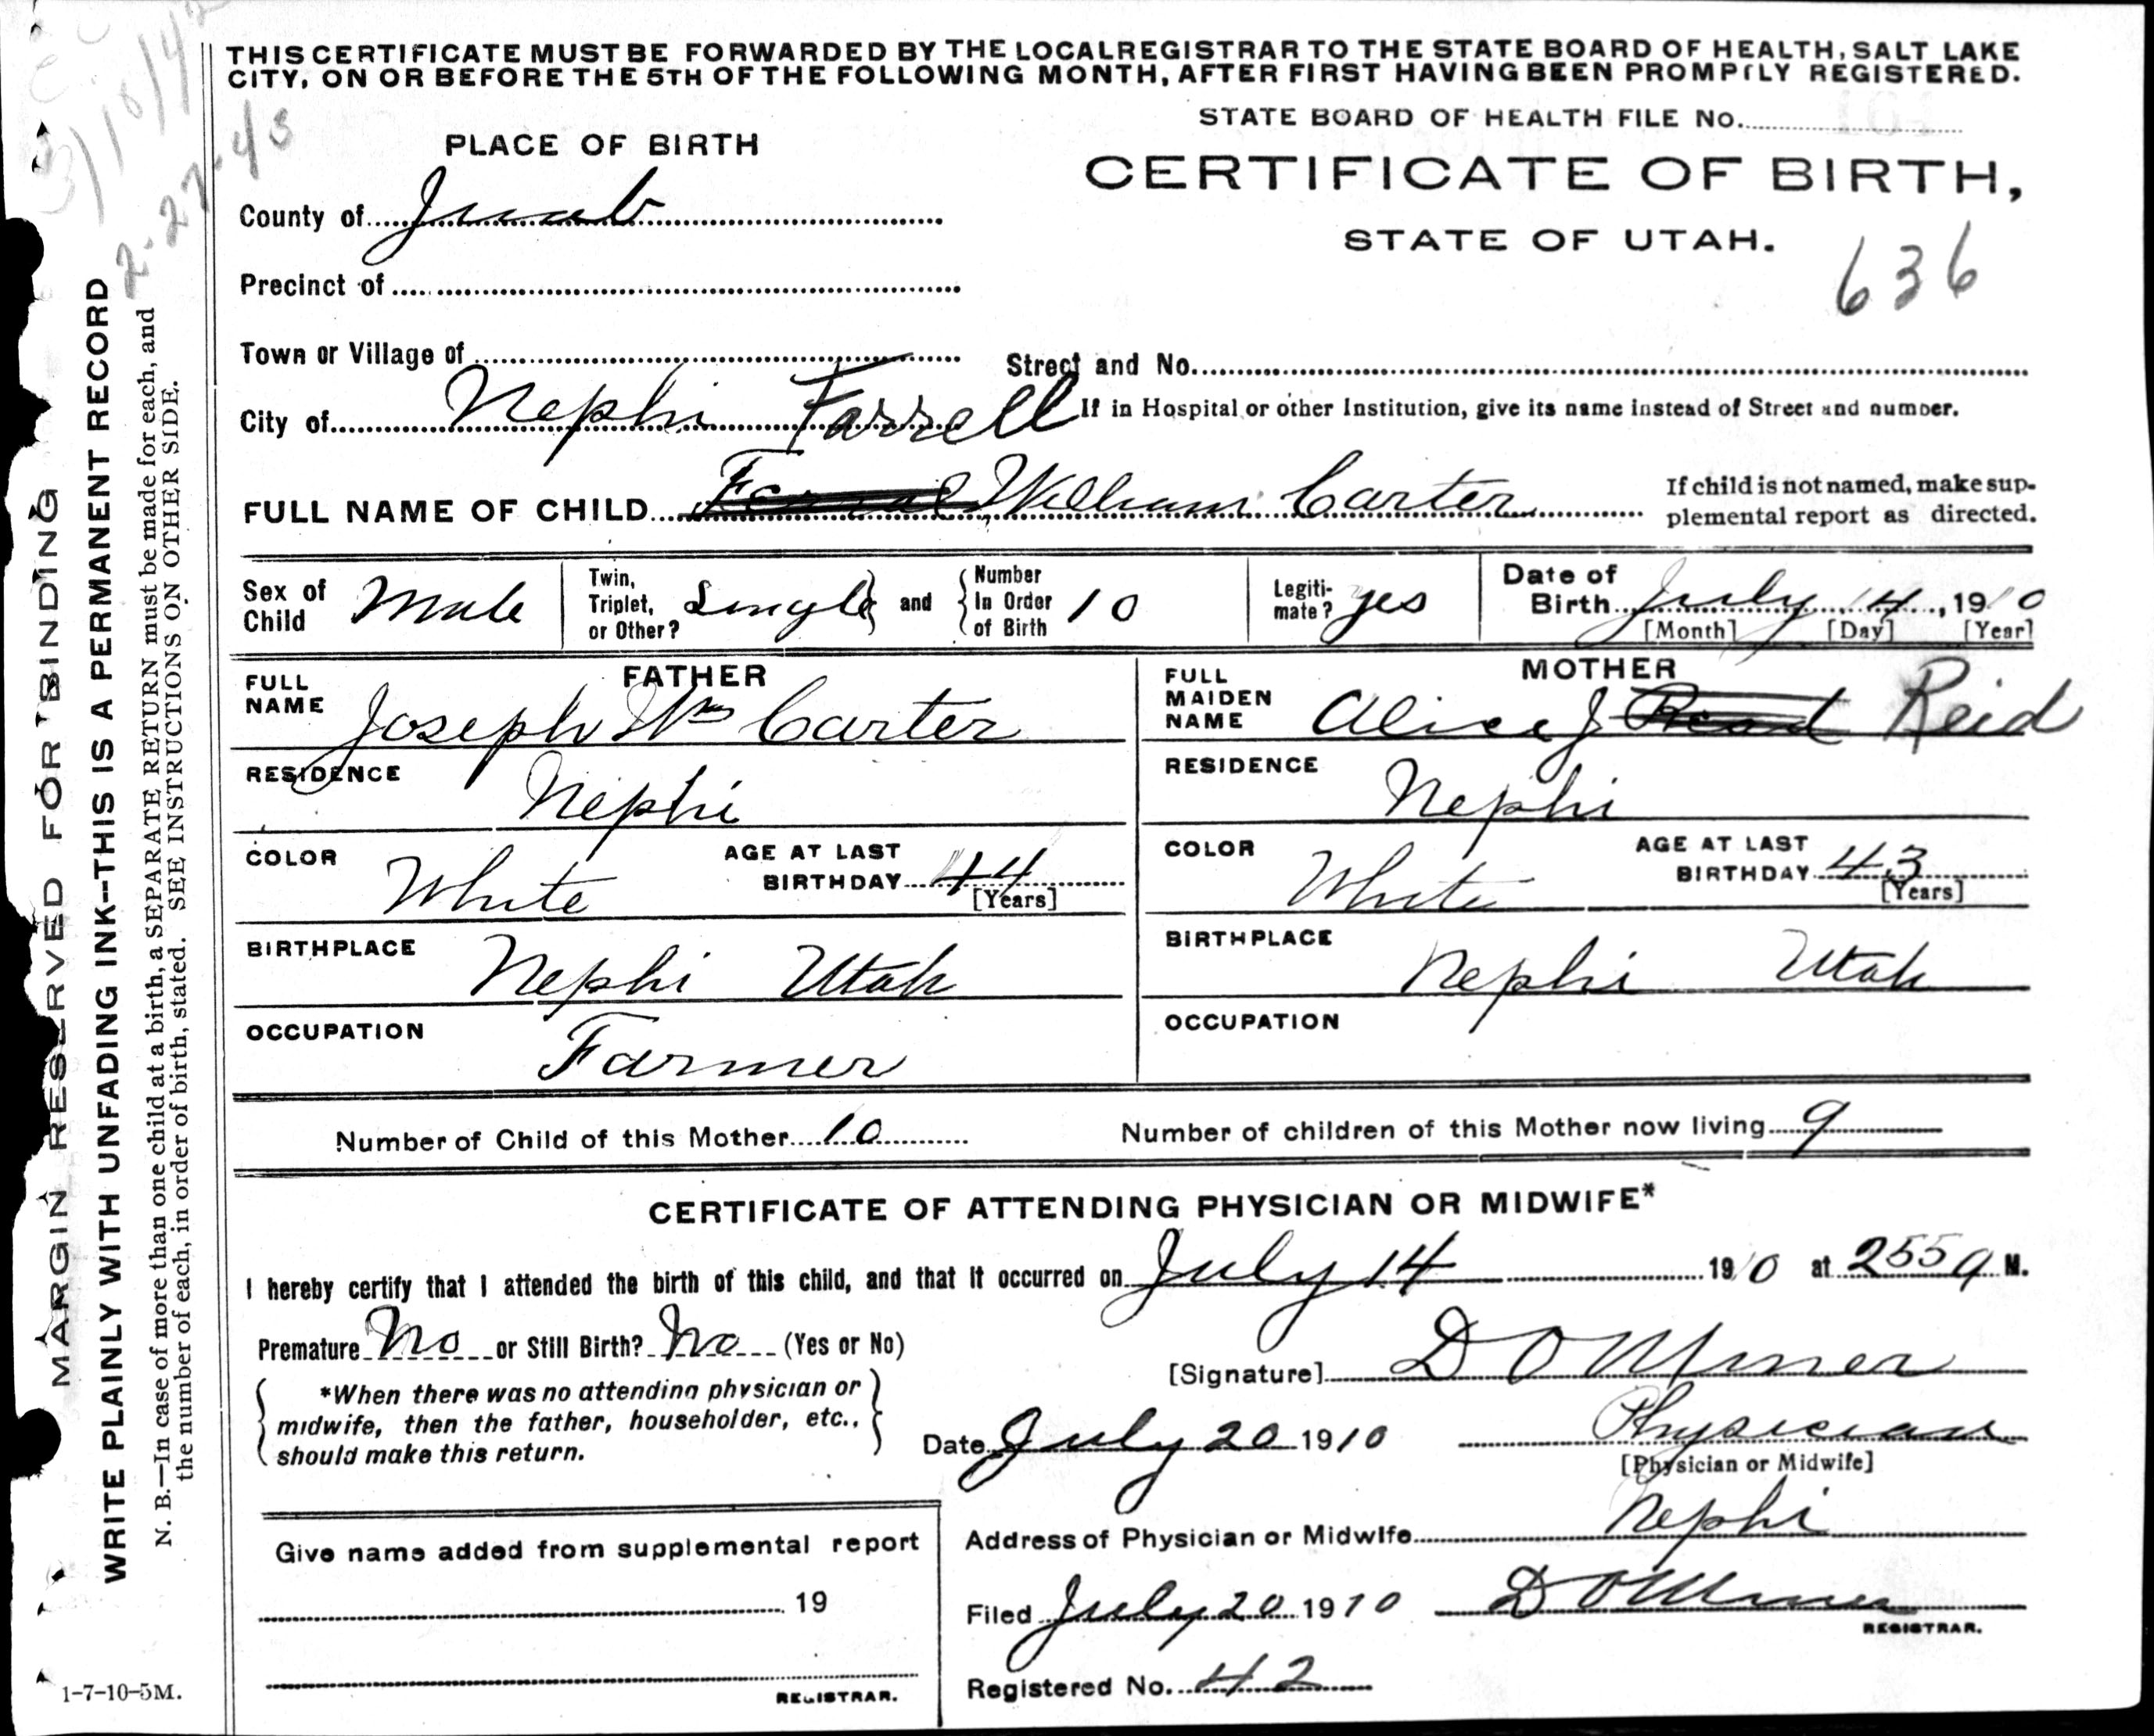 THIS CERTIFICATE MUST BE FORWARDED BY THE LOCAL REGISTRAR TO THE STATE BOARD OF HEALTH, SALT LAKE
CITY, ON OR BEFORE THE 5TH OF THE FOLLOWING MONTH, AFTER FIRST HAVING BEEN PROMPTLY REGISTERED.
STATE BOARD OF HEALTH FILE No.
PLACE OF BIRTH
CERTIFICATE OF BIRTH,
STATE OF UTAH.
636
County of Juab
Precinct of
Town or Village of
Street and No.
City of Nephi
If in Hospital or other Institution, give its name instead of Street and number.
Farrell
FULL NAME OF CHILD William Carter
If child is not named, make sup-
plemental report as directed.
Sex of Child Male
Twin, Triplet, or Other? Single and Number In Order of Birth 10
Legiti-mate? yes
Date of Birth July 14, 1910
[Month] [Day] [Year]
FATHER
FULL NAME Joseph Wm Carter
RESIDENCE Nephi
COLOR White AGE AT LAST BIRTHDAY 44
[Years]
BIRTHPLACE Nephi Utah
OCCUPATION Farmer
MOTHER
FULL MAIDEN NAME Alice J Reid
RESIDENCE Nephi
COLOR White AGE AT LAST BIRTHDAY 43
[Years]
BIRTHPLACE Nephi Utah
OCCUPATION
Number of Child of this Mother 10 Number of children of this Mother now living 9
CERTIFICATE OF ATTENDING PHYSICIAN OR MIDWIFE*
I hereby certify that I attended the birth of this child, and that it occurred on July 14 1910 at 255 a M.
Premature No or Still Birth? No (Yes or No)
*When there was no attending physician or
midwife, then the father, householder, etc.,
should make this return.
[Signature] D O Miner
Date July 20 1910 Physician
[Physician or Midwife]
Address of Physician or Midwife Nephi
Filed July 20 1910 D O Miner
REGISTRAR.
Registered No. 42
Give name added from supplemental report
19
REGISTRAR.
MARGIN RESERVED FOR BINDING
WRITE PLAINLY WITH UNFADING INK--THIS IS A PERMANENT RECORD
N. B.—In case of more than one child at a birth, a SEPARATE RETURN must be made for each, and
the number of each, in order of birth, stated. SEE INSTRUCTIONS ON OTHER SIDE.
2-27-43
1-7-10-5M.